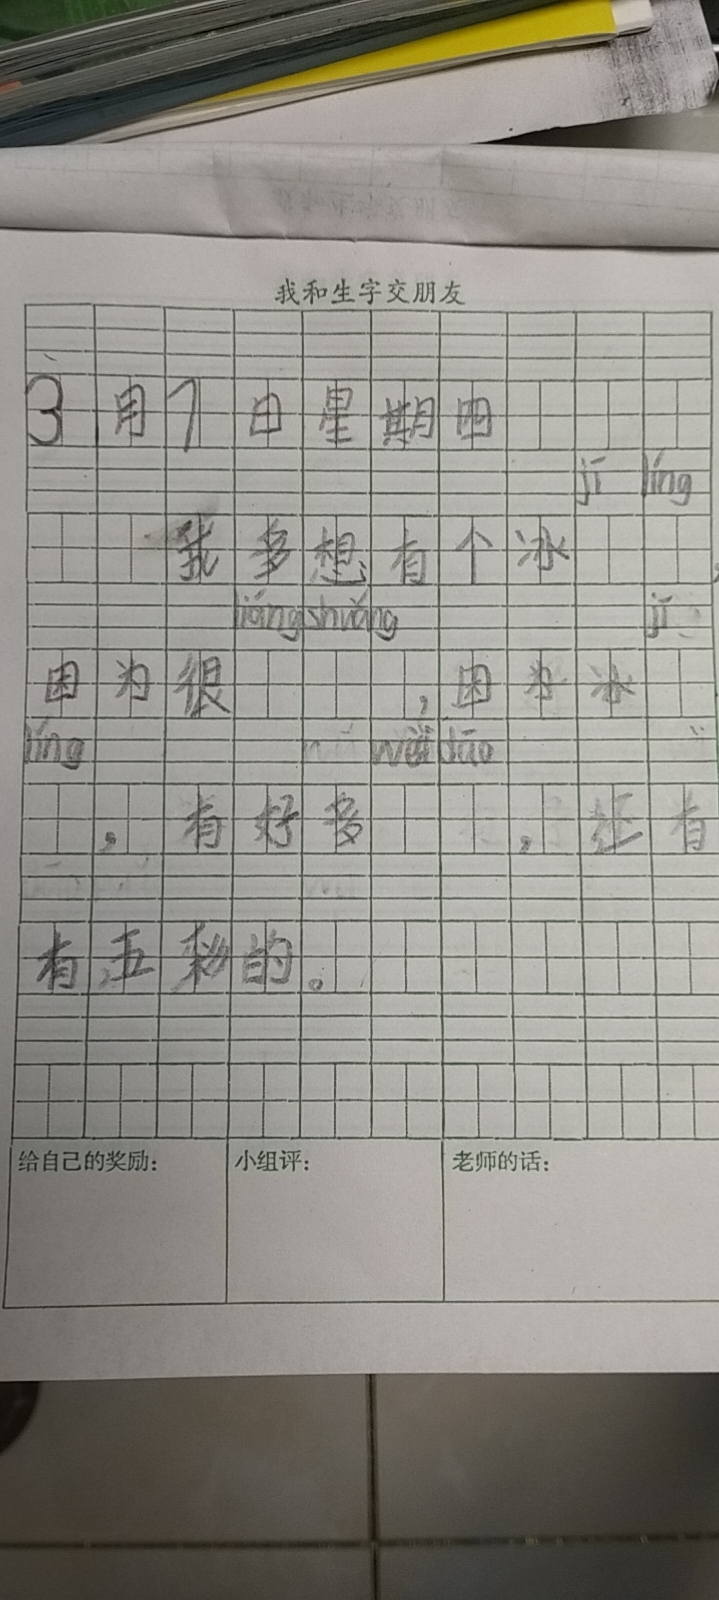 我和生字交朋友
3月7日星期四
jī líng
我多想有个冰
liáng shuǎng jī
因为很，因为冰
líng wèi dào
，有好多，还有
有五彩的。
给自己的奖励： 小组评： 老师的话：